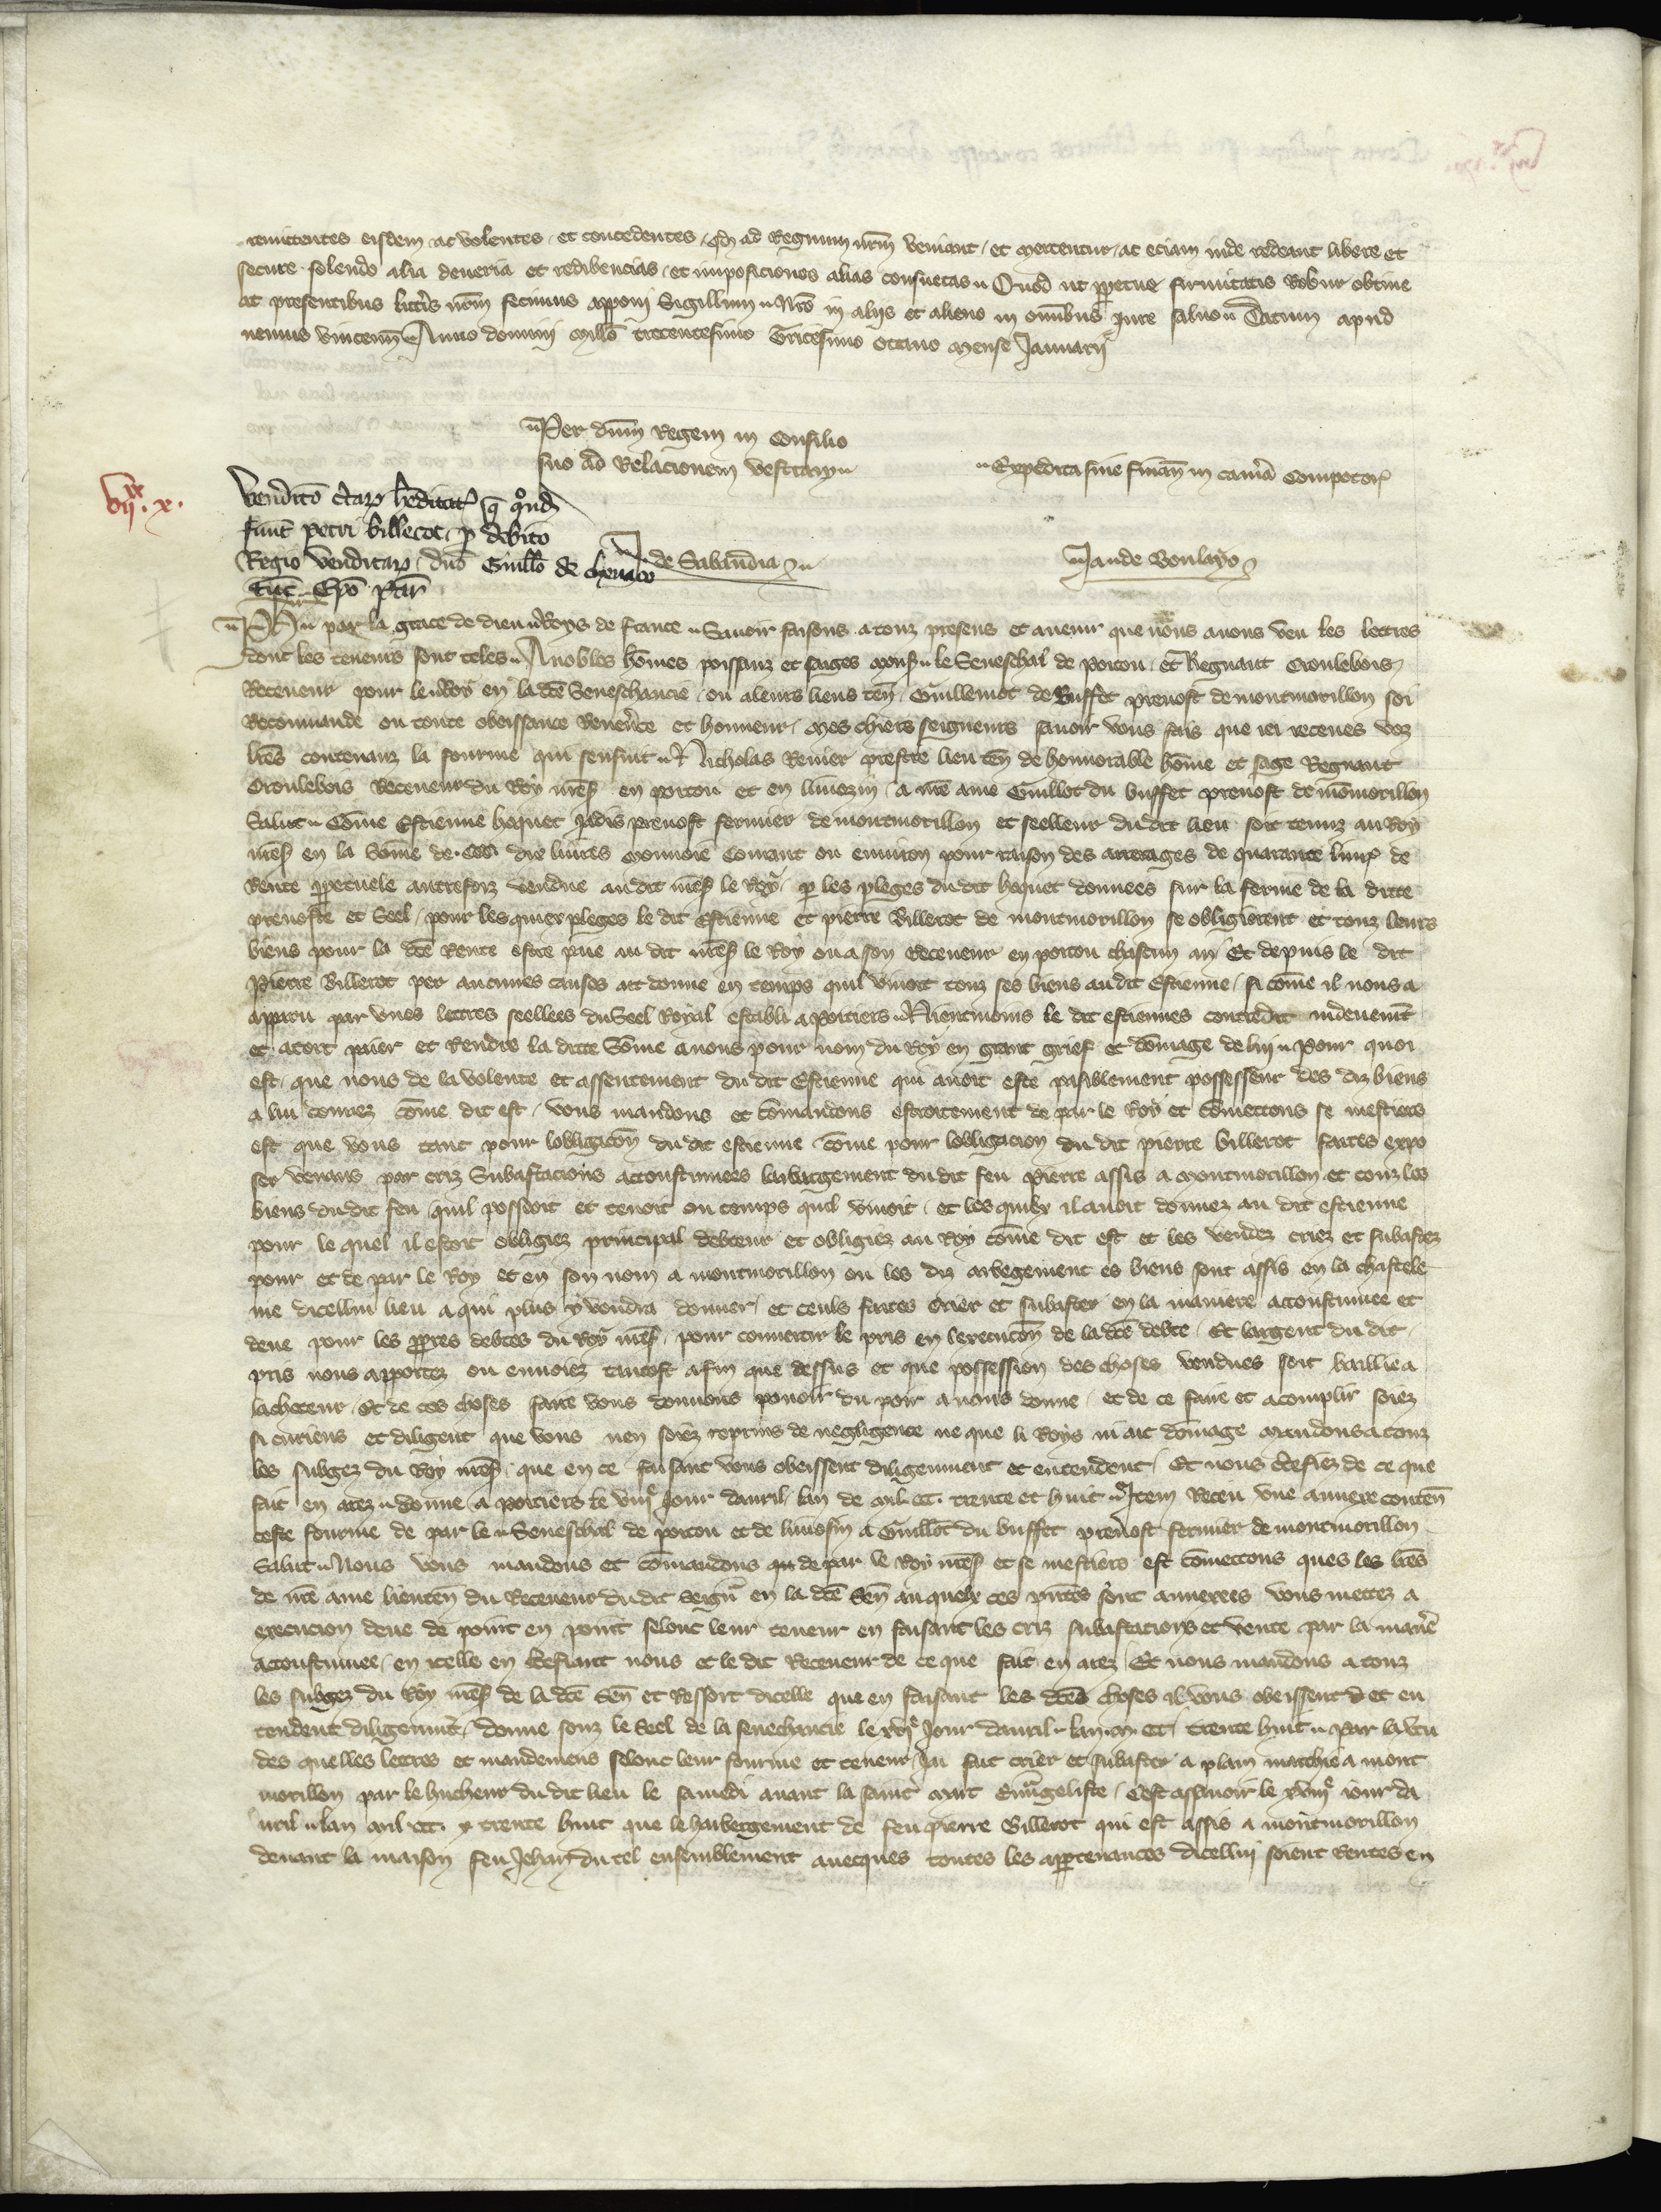 remittentes eisdem ac volentes et concedentes qd ad Regnum nrm veniant et mercentur ac eciam inde redeant libere et
secure soluendo alia deueria et redibencias et imposiciones alias consuetas Quod ut ppetue firmitatis Robur obtine
at presentibus litteris nrm fecimus apponi Sigillum nro in aliis et alieno in omnibus Jure saluo Datum apud
nemus vincenn Anno domini millo trecentesimo Tricesimo octauo mense Januarii
Per dnm Regem in Consilio
suo ad Relacionem vestram
Expedita sine finan in camera Compotor
vii xx x.
Venditō hereditat q qond
funt petri billerot p debito
Regio venditar dno Guillo de chenaco
tuc Epo Par
de Sabaudia
Ja de Boulayo
Ph par la grace de dieu Roys de france Sauoir faisons a touz presens et auenir que nous auons veu les lettres
dont les teneurs sont teles A nobles hōmes poissanz et saiges mons le Seneschal de poitou et Regnaut Croulebois
Receueur pour le Roy en la dcē Seneschaucie ou a leurs lieus ten Guillemot de Buffet preuost de montmorillon soi
Recommande ou toute obeissance Reuerēce et honneur mes chiers seigneurs sauoir vous fais que iei receues voz
lrēs contenanz la fourme qui sensuit Nicholas Renier prestre lieu ten de honnorable hōme et sage Regnaut
Croulebois Receueur du Roy nrēs en poitou et en limozin a nrē ame Guillot du buffet preuost de mōmorillon
Salut Cōme Estienne hoquet Jadis preuost fermier de montmorillon et seelleur du dit lieu soit tenuz au Roy
nrēs en la Sōme de dix liures monnoie Courant ou enuiron pour raison des arrerages de quarante liur de
Rente ppetuele autrefoiz vendue au dit nrēs le Roy p les pleges du dit hoquet donnees sur la ferme de la dicte
preuoste et Seel pour les quiex pleges le dit Estienne et pierre Billerot de montmorillon se obligierent et touz leurs
biens pour la dcē Rente estre paie au dit nrēs le Roy ou a son Receueur en poitou chascun an Et depuis le dit
Pierre Billerot per aucunes causes ait donne en temps quil viuoit touz ses biens au dit Estienne si cōme il nous a
apparu par vnes lettres seellees du Seel Royal establi a poitiers Nientmoins le dit estiennes contredit indeuemēt
et a tort paier et Rendre la dicte Sōme a nous pour nom du Roy en grant grief et dōmage de lui Pour quoi
est que nous de la volente et assentement du dit Estienne qui auoit este paisiblement possesseur des diz biens
a lui donnez cōme dit est vous mandons et cōmandons estroitement de par le Roy et cōmettons se mestiers
est que vous tant pour lobligaciōn du dit estienne cōme pour lobligacion du dit pierre billerot faites expo
ser venaus par criz Subastacions accoustumees laibergement du dit feu Pierre assis a montmorillon et touz les
biens du dit feu quil possoit et tenoit ou temps quil viuoit et les quiex il auoit donnez au dit estienne
pour le quel il estoit obligiez principal debteur et obligiez au Roy cōme dit est et les vendez criez et subastez
pour et de par le Roy et en son nom a montmorillon ou les diz arbegement es biens sont assis en la chastele
nie dicellui lieu a qui plus y voudra donner et ceuls faites crier et subaster en la maniere accoustumee et
deue pour les ppres debtes du Roy nrēs pour conuertir le pris en lexecucōn de la dcē debte Et largent du dit
pris nous apportez ou enuoiez tantost afin que dessus et que possession des choses vendues soit bailliee a
lacheteur Et de ces choses faire vous donnons pouoir du poir a nous donne et de ce faire et acomplir soiez
si curieus et diligent que vous nen soiez reprins de negligence ne que li Roys ni ait dōmage mandons a touz
les subgez du Roy nrēs que en ce faisant vous obeissent diligemment et entendent Et nous certefiez de ce que
fait en arez donne a poitiers le viiiᵉ Jour dauril lan de mil ccc. trente et huit Item Receu vne annexe conten
ceste fourme de par le Seneschal de poitou et de limosin a Guillot du buffet preuost fermier de montmorillon
Salut Nous vous mandons et cōmandons de par le Roy nrēs et se mestiers est cōmettons ques les lrēs
de nrē ame lieuten du Receueur du dit Seignr en la dcē Sen au quelx ces pntes sont annexees vous mettez a
execucion deue de point en point selonc leur teneur en faisant les criz subastacions et vente par la manē
accoustumee en icelle en certefiant nous et le dit Receueur de ce que fait en arez Et nous mandons a touz
les subgez du Roy nrēs de la dcē Sen et Ressort dicelle que en faisant les dcēs choses il vous obeissent et en
tendent diligemmēt donne souz le Seel de la senechaucie le xviᵉ Jour dauril lan m ccc trente huit Par la vtu
des quelles lettres et mandemens selonc leur fourme et teneur Jai fait crier et subaster a plain marchie a mont
morillon par le hucheur du dit lieu le samedi auant la saint marc Euuāgeliste Cest assauoir le xviiiᵉ iour da
uril lan mil ccc. trente huit que le haibergement de feu pierre Billerot qui est assis a montmorillon
deuant la maison feu Jehan du tel ensemblement auecques toutes les appartenances dicelluy soient Rentes en